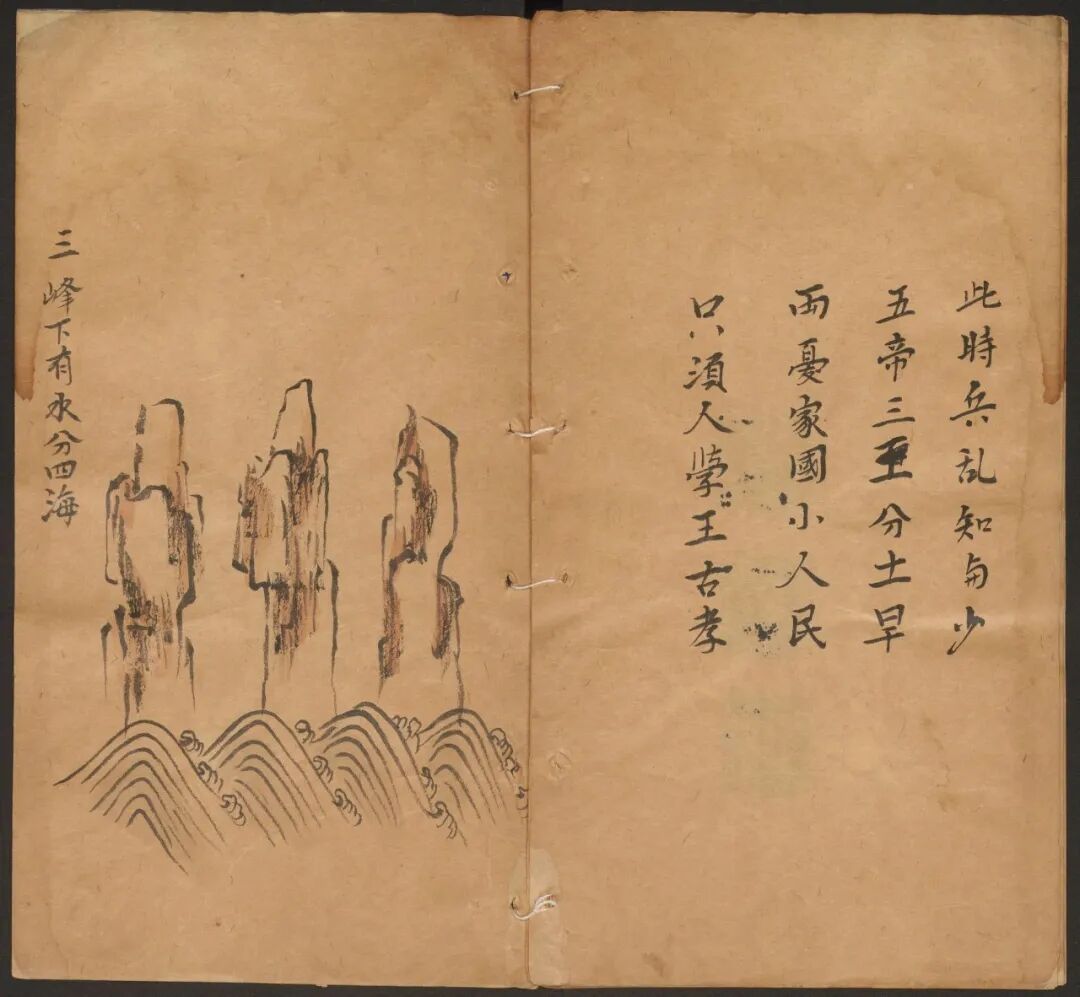 此時兵乱知多少
五帝三王分土早
両憂家國小人民
只湏人孝王古孝
三峰下有水分四海